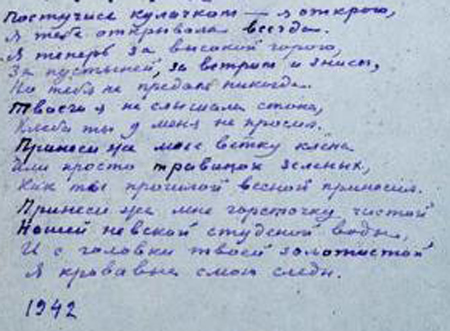 Постучись кулачком — я открою,
Я тебе открывала всегда.
Я теперь за высокой горою,
За пустыней, за ветром и зноем,
Но тебя не предам никогда.
Твоего я не слышала стона,
Хлеба ты у меня не просил.
Принеси же мне ветку клена
Или просто травинок зеленых,
Как ты прошлой весной приносил.
Принеси же мне горсточку чистой
Нашей невской студеной воды,
И с головки твоей золотистой
Я кровавые смою следы.
1942